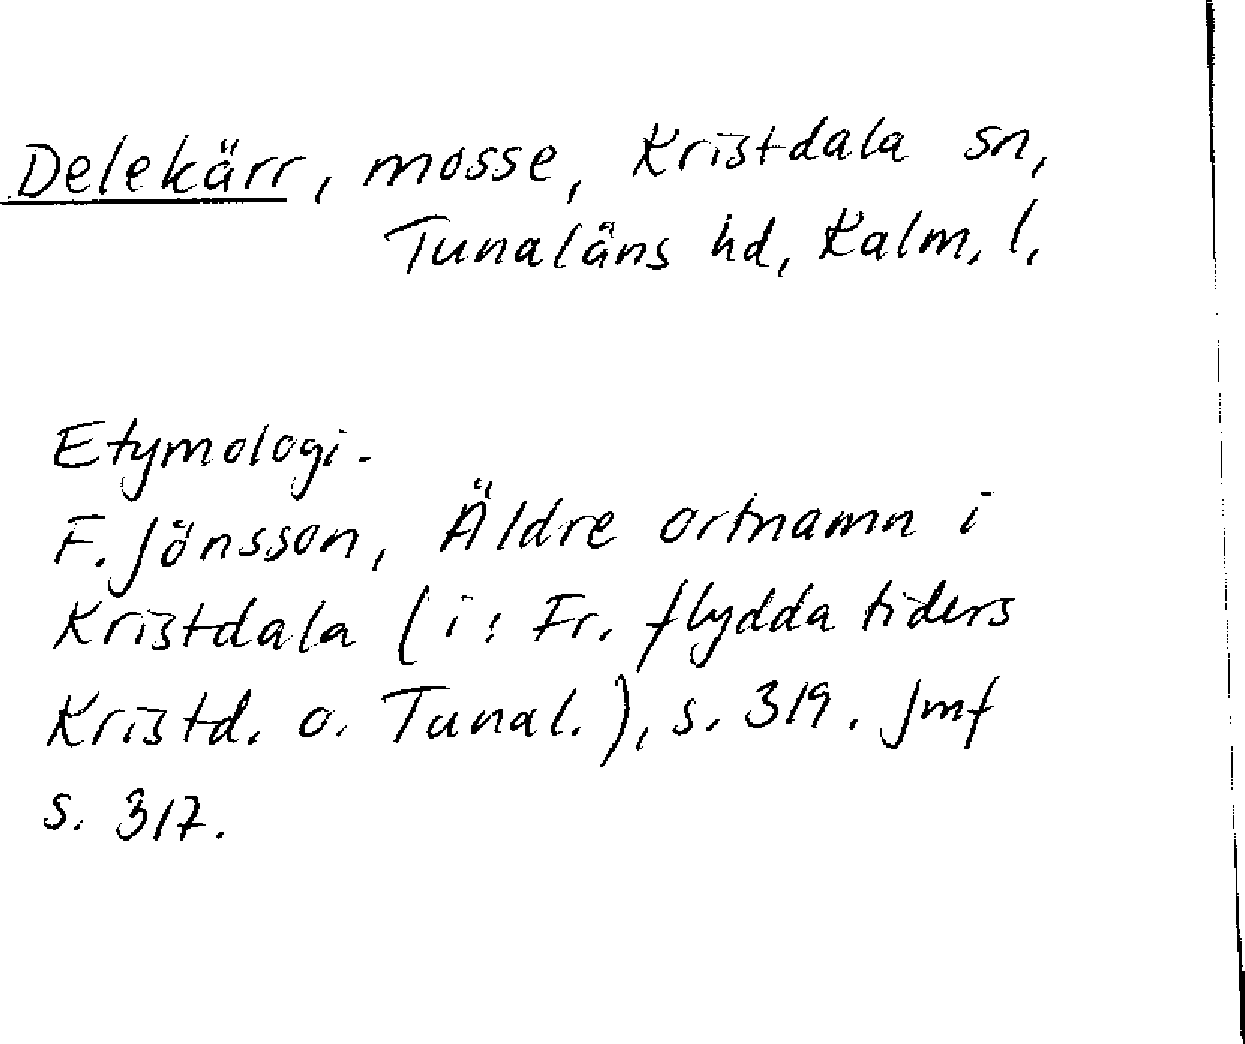 Delekärr, mosse, Kristdala sn,
Tunaläns hd, Kalm. l.
Etymologi.
F. Jönsson, Äldre ortnamn i
Kristdala (i: Fr. flydda tiders
Kristd. o. Tunal.), s. 319. Jmf
s. 317.